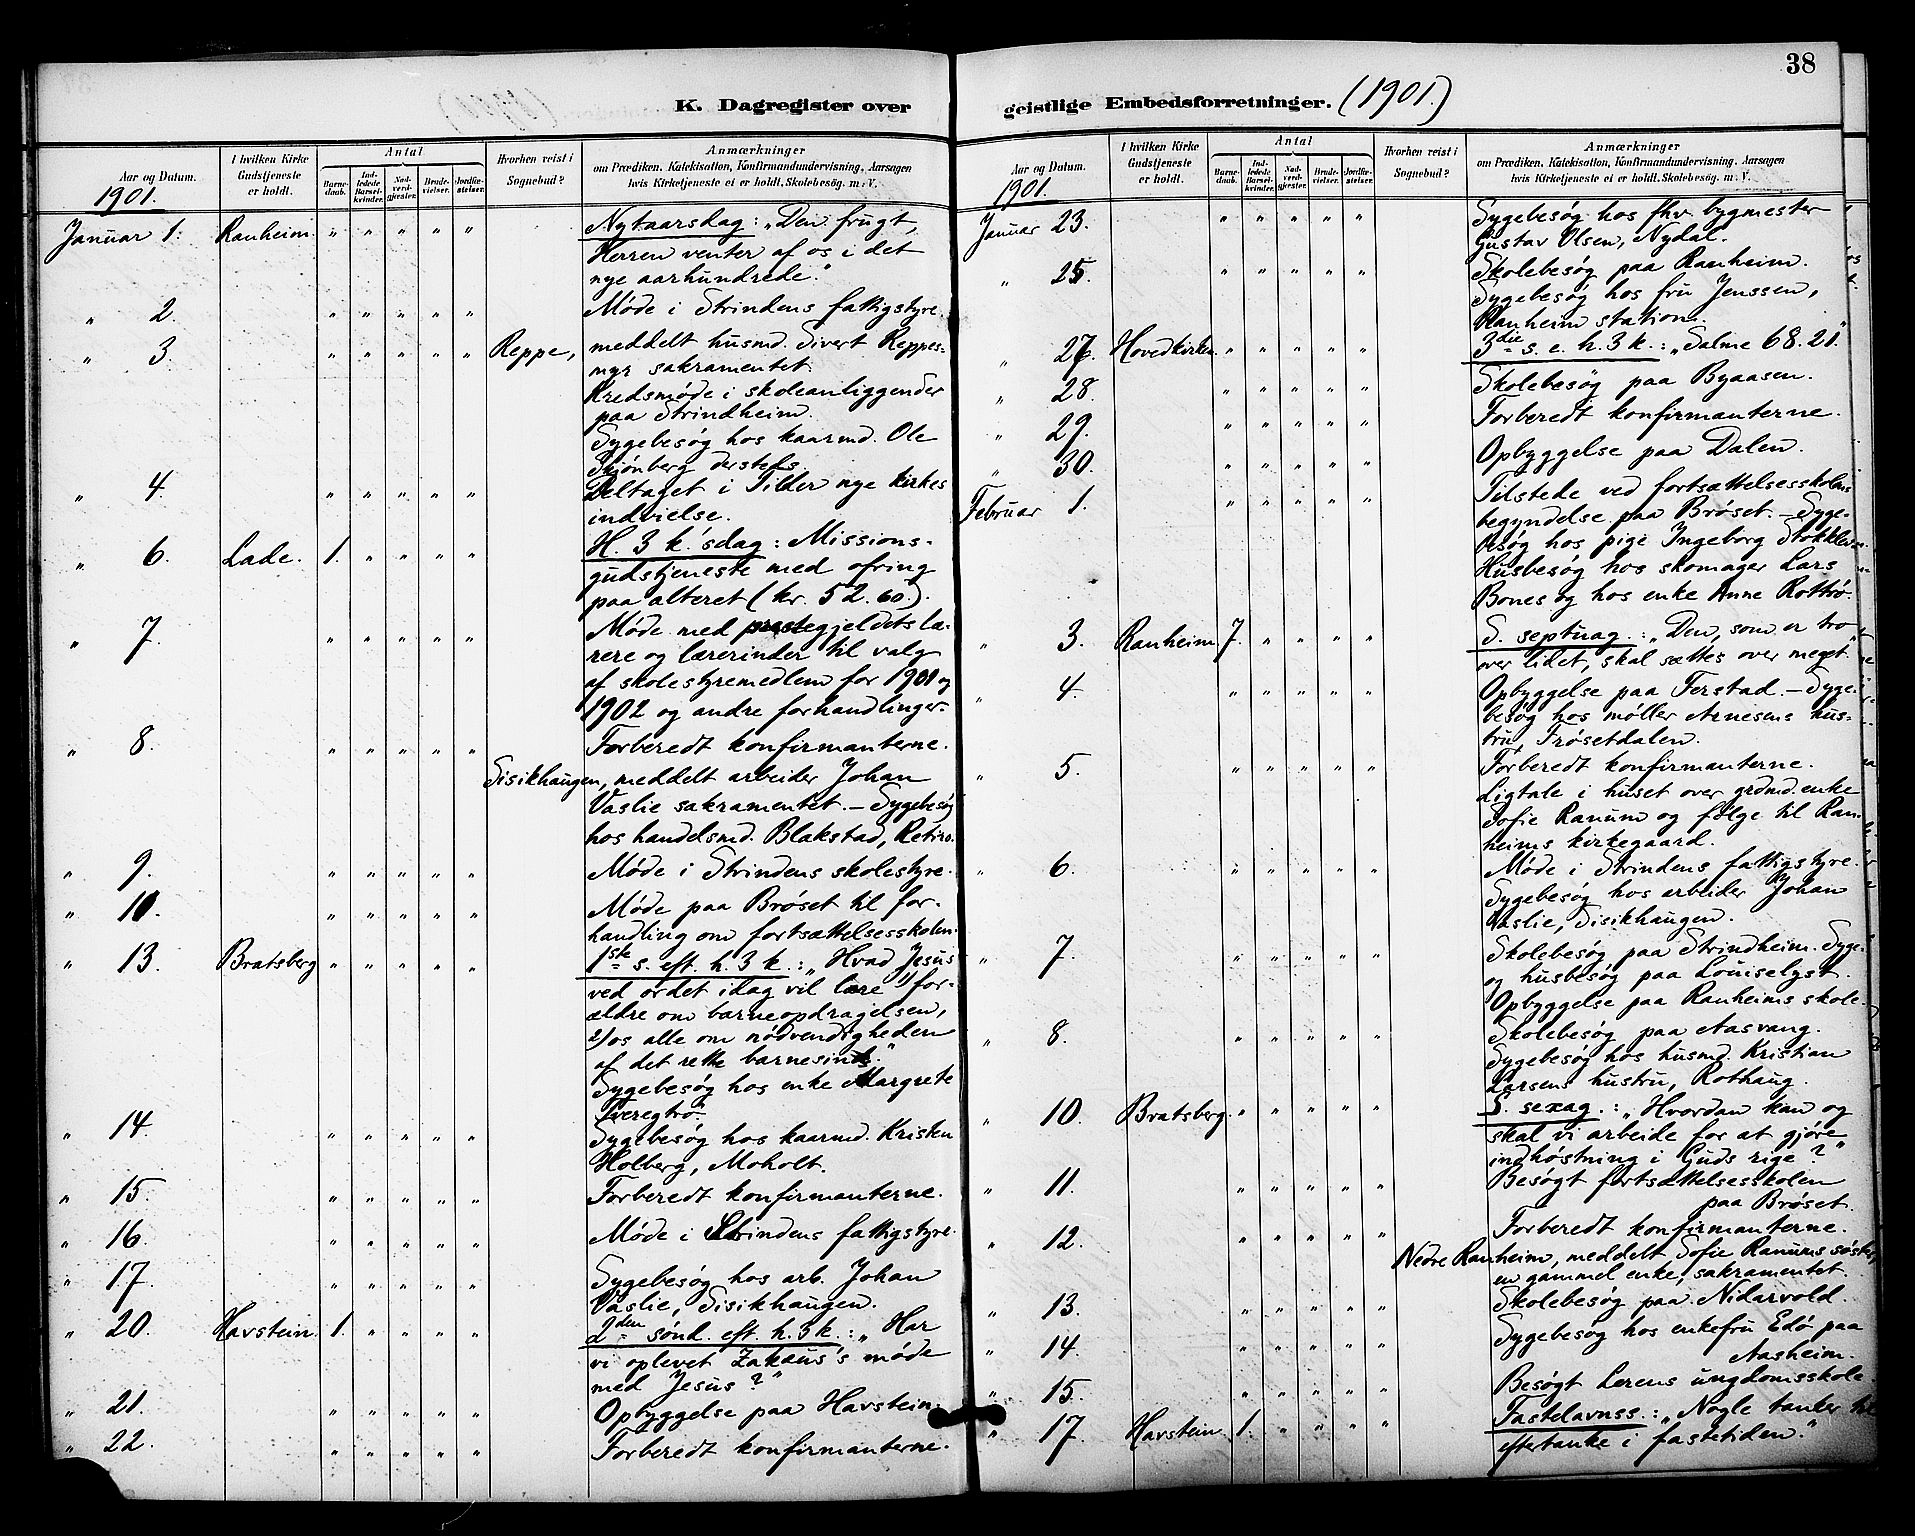 38
K. Dagregister over geistlige Embedsforretninger. (1901.)
Aar og Datum. 1901.
I hvilken Kirke Gudstjeneste er holdt.
Antal
Barnedaab.
Indledede Barselkvinder.
Nadverdgjester.
Brudevielser.
Jordfæstelser.
Hvorhen reist i Sognebud?
Anmærkninger
om Prædiken, Katekisation, Konfirmandundervisning, Aarsagen
hvis Kirketjeneste ei er holdt, Skolebesøg. m. V.
Januar 1. Ranheim. " " " " " Nytaarsdag: "Den frugt,
Herren venter af os i det
nye aarhundrede."
" 2. " " " " " Møde i Strindens fattigstyre.
" 3. " " " " " Reppe, meddelt husmd. Sivert Reppes-
nyr sakramentet.
Kredsmøde i skoleanliggender
paa Strindheim.
Sygebesøg hos kaarmd. Ole
Skjønberg dersteds.
" 4. " " " " " Deltaget i Tilder nye kirkes
indvielse.
" 6. Lade. 1. " " " " H. 3 k.'sdag: Missions-
gudstjeneste med ofring
paa alteret (kr. 52.60.).
" 7. " " " " " Møde med prestegjeldets læ-
rere og lærerinder til valg
af skolestyremedlem for 1901 og
1902 og andre forhandlinger.
" 8. " " " " " Forberedt konfirmanterne.
Sisikhaugen, meddelt arbeider Johan
Vaslie sakramentet. – Sygebesøg
hos handelsmd. Blakstad, Retiro.
" 9. " " " " " Møde i Strindens skolestyre.
" 10. " " " " " Møde paa Brøset til for-
handling om fortsættelsesskolen.
" 13. Bratsberg " " " " " 1ste s. eft. h. 3 k.: "Hvad Jesus
ved ordet idag vil lære 1) for-
ældre om barneopdragelsen,
2) os alle om nødvendigheden
af det rette barnesind."
Sygebesøg hos enke Margrete
Tveregtrø.
" 14. " " " " " Sygebesøg hos kaarmd. Kristen
Holberg, Moholt.
" 15. " " " " " Forberedt konfirmanterne.
" 16. " " " " " Møde i Strindens fattigstyre.
" 17. " " " " " Sygebesøg hos arb. Johan
Vaslie, Sisikhaugen.
" 20. Havstein. 1. " " " " 2den sønd. eft. h. 3 k.: "Har
vi oplevet Zakæus's møde
med Jesus?"
" 21. " " " " " Opbyggelse paa Havstein.
" 22. " " " " " Forberedt konfirmanterne.
Aar og Datum. 1901.
I hvilken Kirke Gudstjeneste er holdt.
Antal
Barnedaab.
Indledede Barselkvinder.
Nadverdgjester.
Brudevielser.
Jordfæstelser.
Hvorhen reist i Sognebud?
Anmærkninger
om Prædiken, Katekisation, Konfirmandundervisning, Aarsagen
hvis Kirketjeneste ei er holdt, Skolebesøg. m. V.
Januar 23. " " " " " Sygebesøg hos fhv. bygmester
Gustav Olsen, Nydal.
" 25. " " " " " Skolebesøg paa Ranheim.
Sygebesøg hos fru Jenssen,
Ranheim station.
" 27. Hovedkirken " " " " " 3die s. e. h. 3 k.: "Salme 68.21."
" 28. " " " " " Skolebesøg paa Byaasen.
" 29. " " " " " Forberedt konfirmanterne.
" 30. " " " " " Opbyggelse paa Dalen.
Februar 1. " " " " " Tilstede ved fortsættelsesskolens
begyndelse paa Brøset. – Syge-
besøg hos pige Ingeborg
Husbesøg hos skomager Lars
Bones og hos enke Anne Rottrø.
" 3. Ranheim. 7. " " " " S. septuag.: "Den, som er tro
over lidet, skal sættes over meget."
" 4. " " " " " Opbyggelse paa Ferstad. – Syge-
besøg hos møller Arnesens hus-
tru, Frøsetdalen.
" 5. " " " " " Forberedt konfirmanterne.
Ligtale i huset over grdmd.enke
Sofie Ranum og følge til Ran-
heims kirkegaard.
" 6. " " " " " Møde i Strindens fattigstyre.
Sygebesøg hos arbeider Johan
Vaslie, Sisikhaugen.
" 7. " " " " " Skolebesøg paa Strindheim. Syge-
og husbesøg paa Louiselyst.
Opbyggelse paa Ranheims skole.
" 8. " " " " " Skolebesøg paa Aasvang.
Sygebesøg hos husmd. Kristian
Larsens hustru, Rothaug.
" 10. Bratsberg. " " " " " S. sexag.: "Hvordan kan og
skal vi arbeide for at gjøre
indhøstning i Guds rige?"
" 11. " " " " " Besøgt fortsættelsesskolen
paa Brøset.
" 12. " " " " " Forberedt konfirmanterne.
Nedre Ranheim, meddelt Sofie Ranums søster,
en gammel enke, sakramentet.
" 13. " " " " " Skolebesøg paa Nidarvold.
" 14. " " " " " Sygebesøg hos enkefru Edø paa
Aasheim.
" 15. " " " " " Besøgt Lerens ungdomsskole.
" 17. Havstein 1. " " " " Fastelavnss.: "Nogle tanker til
eftertanke i fastetiden."